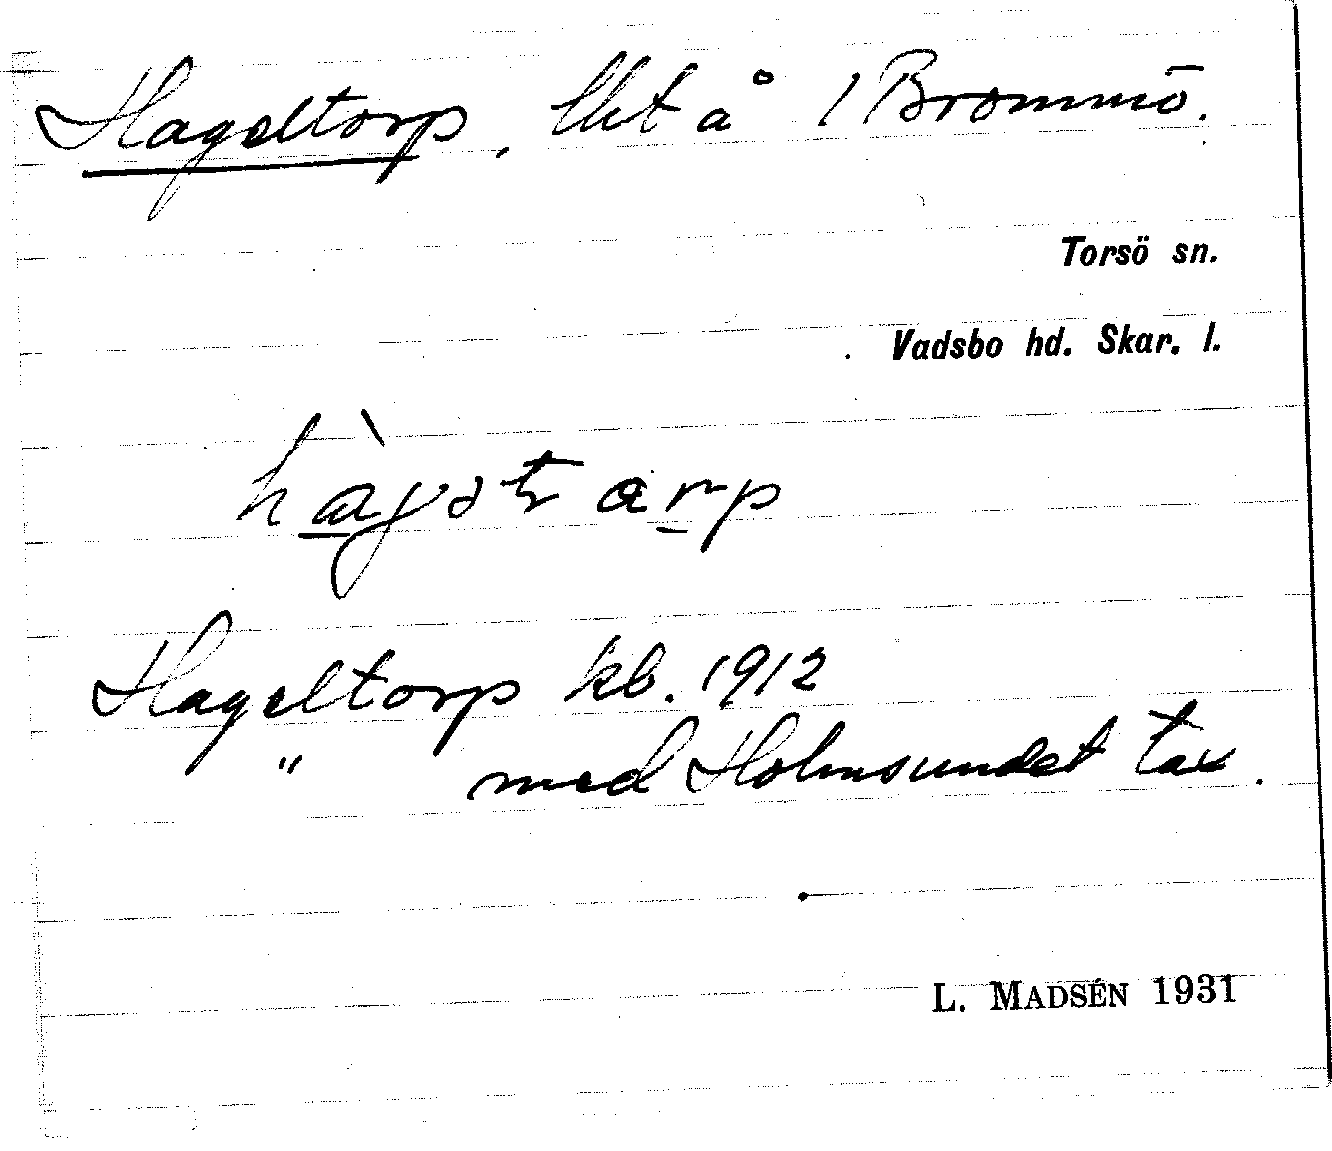 Hageltorp, lht å 1 Brommö.
Torsö sn.
Vadsbo hd. Skar. l.
Hageltorp kb. 1912
" med Holmsundet tax.
L. MADSÉN 1931